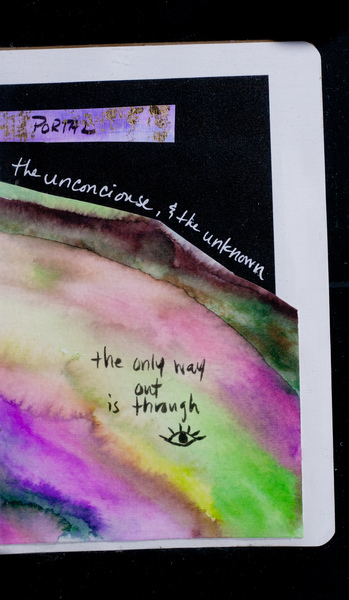 PORTAL
the unconciouse, & the unknown
the only way
out
is through